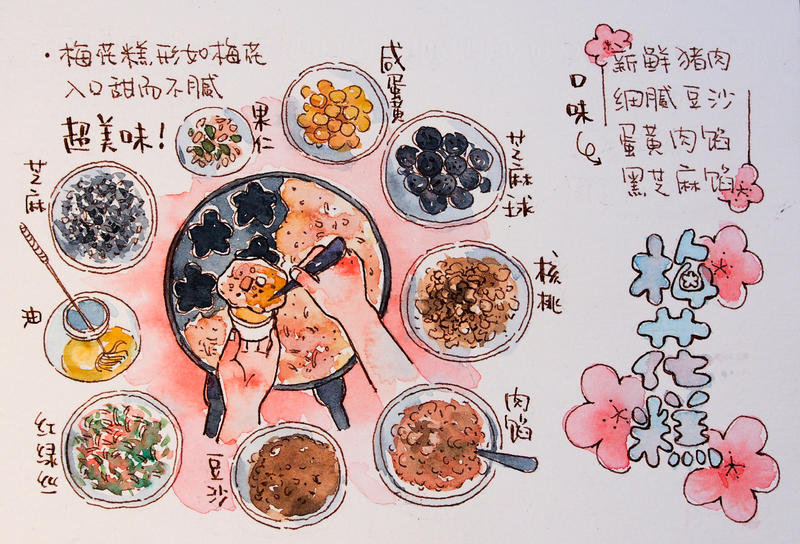 ·梅花糕形如梅花
入口甜而不腻
超美味!
果仁
咸蛋黄
芝麻球
核桃
肉馅
豆沙
芝麻
口味
新鲜猪肉
细腻豆沙
蛋黄肉馅
黑芝麻馅
梅花糕